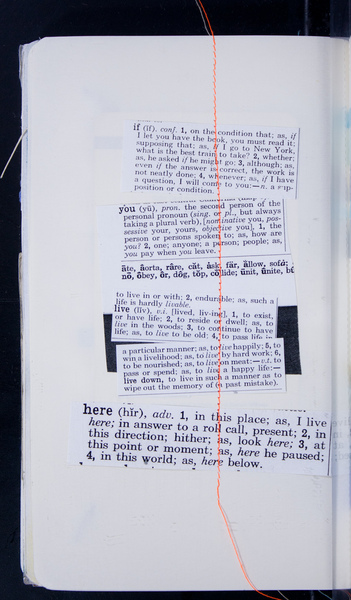 if (ĭf), conj. 1, on the condition that; as, if
I let you have the book, you must read it;
supposing that; as, if I go to New York,
what is the best train to take? 2, whether;
as, he asked if he might go; 3, although; as,
even if the answer is correct, the work is
not neatly done; 4, whenever; as, if I have
a question, I will come to you:—n. a sup-
position or condition.
you (yū), pron. the second person of the
personal pronoun (sing. or pl., but always
taking a plural verb), [nominative you, pos-
sessive your, yours, objective you], 1, the
person or persons spoken to; as, how are
you? 2, one; anyone; a person; people; as,
you pay when you leave.
āte, âorta, râre, căt, åsk, fär, ăllow, sofá;
nō, ōbey, ôr, dŏg, tŏp, cŏllide; ūnit, ūnite, bŭ
to live in or with; 2, endurable; as, such a
life is hardly livable.
live (lĭv), v.i. [lived, liv-ing], 1, to exist,
or have life; 2, to reside or dwell; as, to
live in the woods; 3, to continue to have
life; as, to live to be old; 4, to pass life in
a particular manner; as, to live happily; 5, to
win a livelihood; as, to live by hard work; 6,
to be nourished; as, to live on meat:—v.t. to
pass or spend; as, to live a happy life:—
live down, to live in such a manner as to
wipe out the memory of (a past mistake).
here (hĭr), adv. 1, in this place; as, I live
here; in answer to a roll call, present; 2, in
this direction; hither; as, look here; 3, at
this point or moment; as, here he paused;
4, in this world; as, here below.